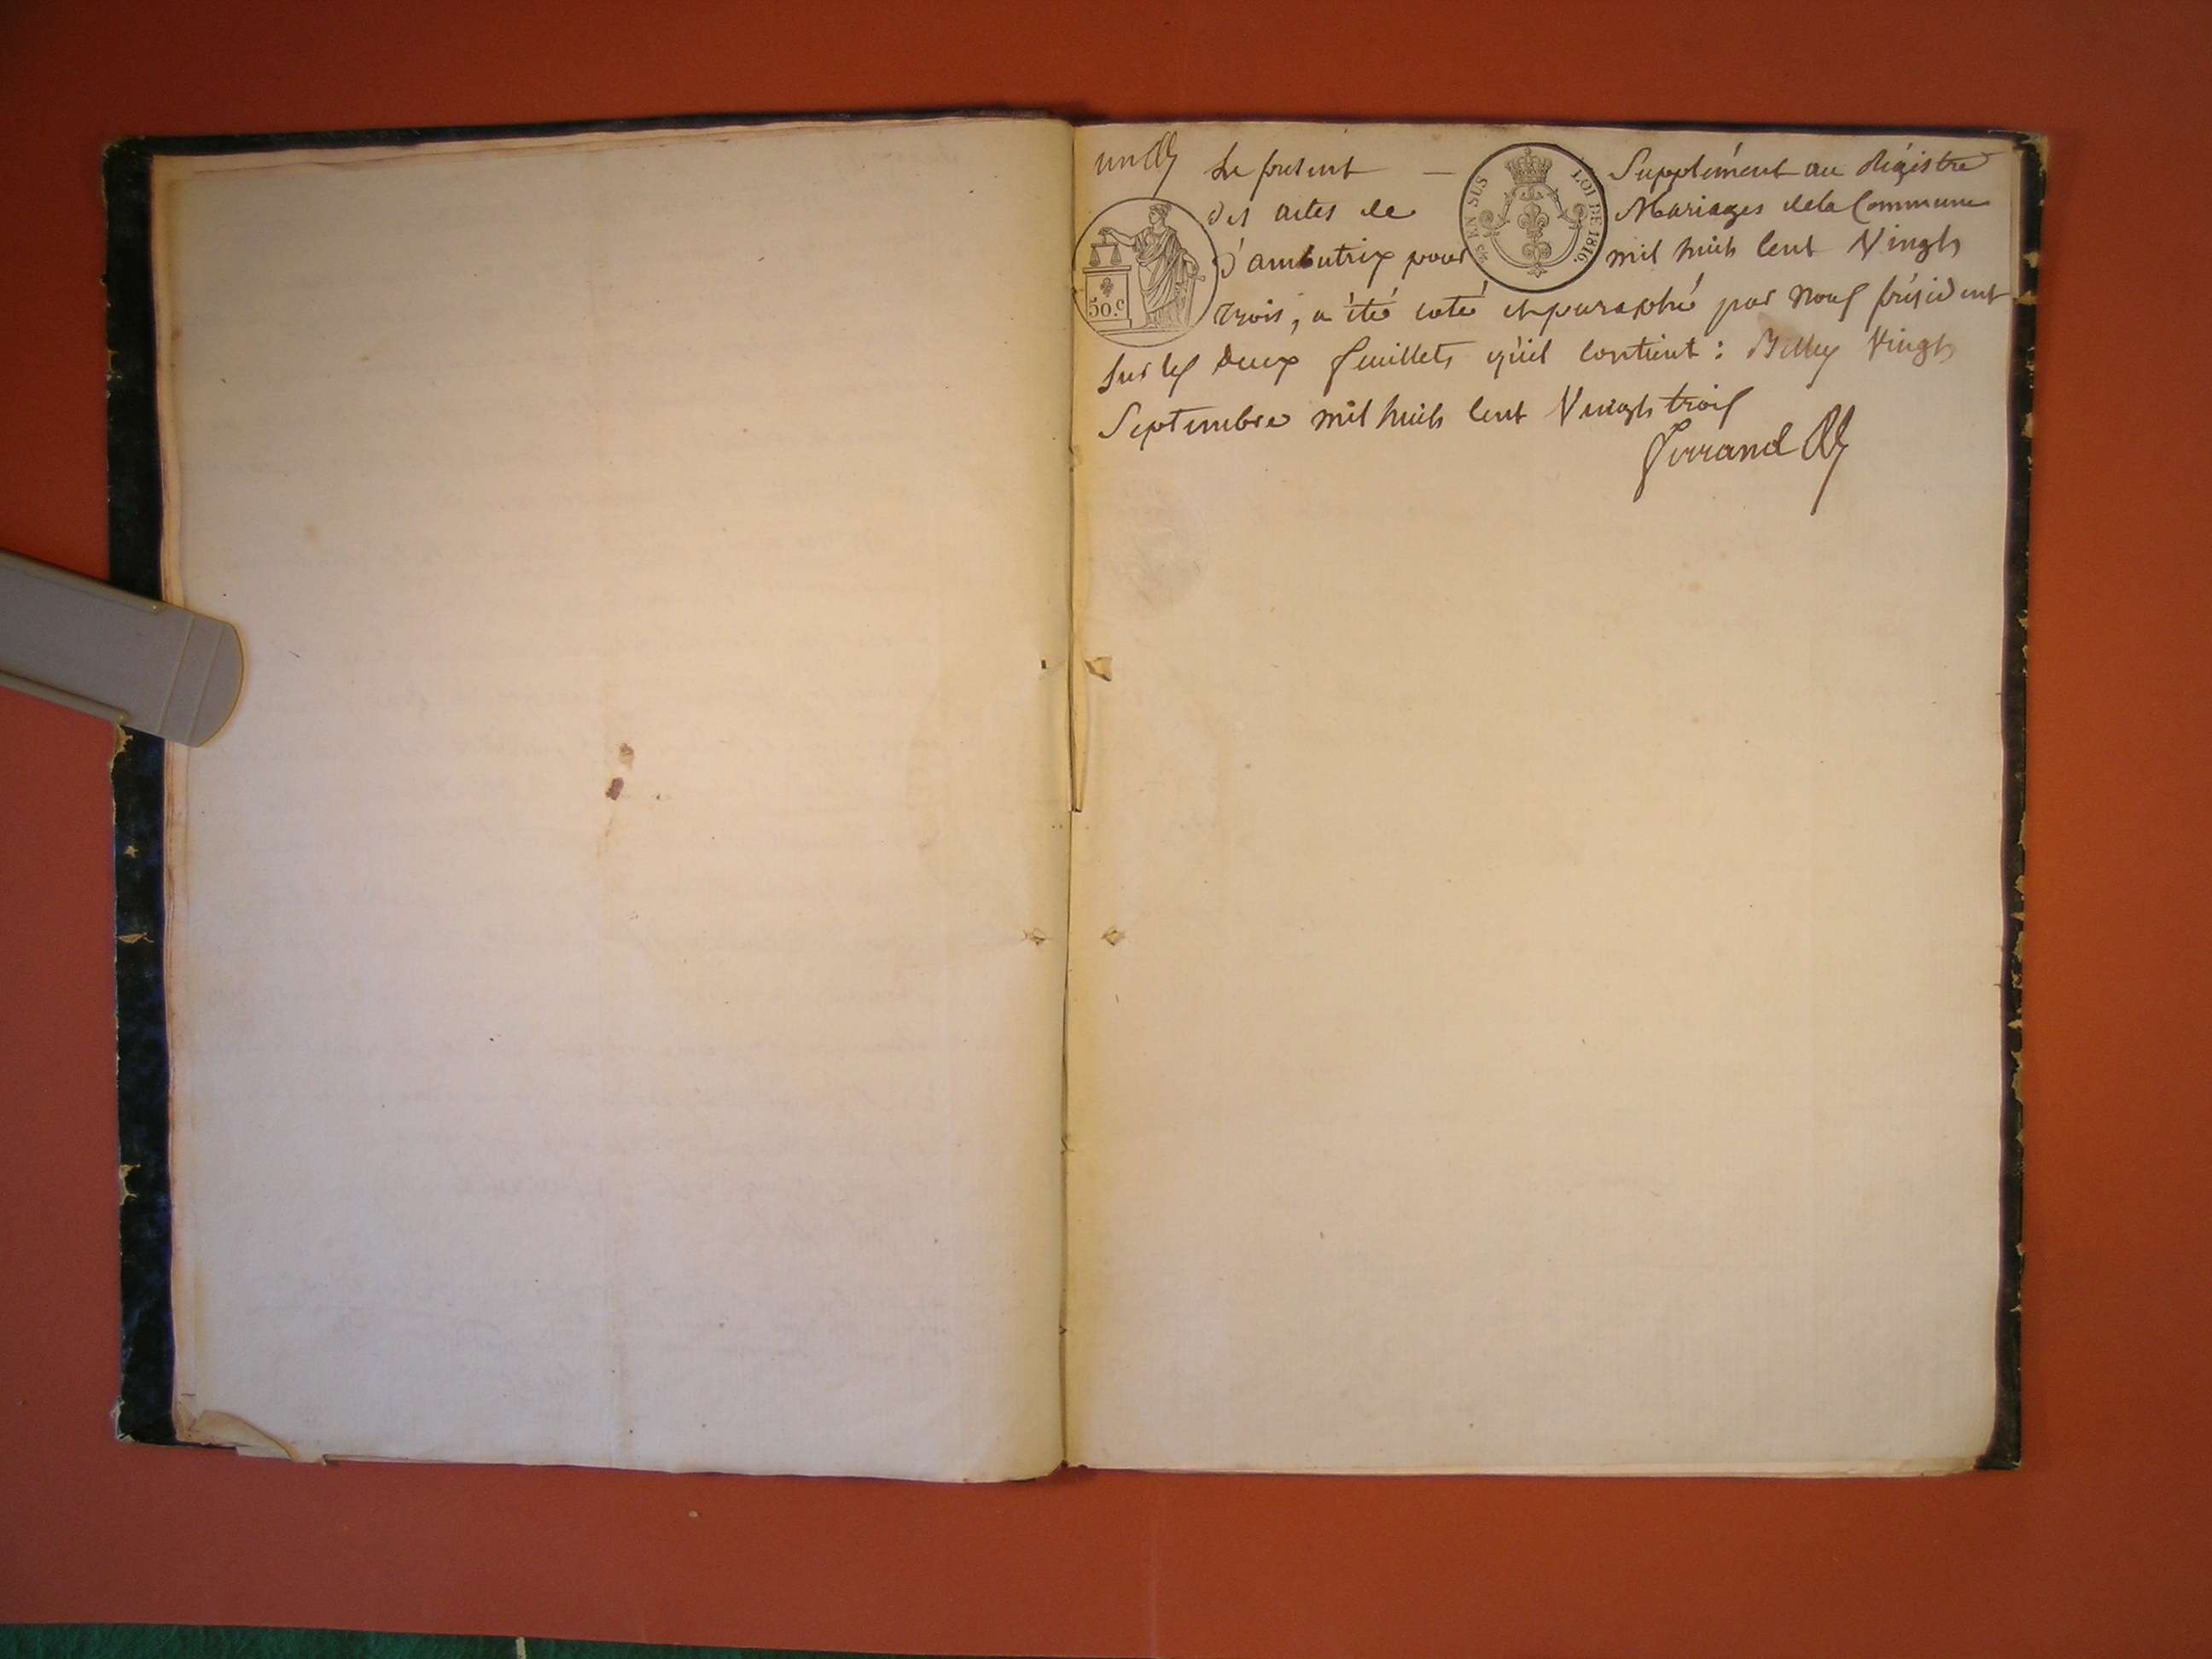 un Le présent — Supplément au Régistre
des actes de Mariages dela Commune
d'ambutrix pour mil huit Cent Vingt
trois, a été coté et paraphé par nous président
sur les deux feuillets qu'il contient : Belley Vingt
Septembre mil huit Cent Vingt trois
Ferrand
50.c
EN SUS
LOI DE 1816.